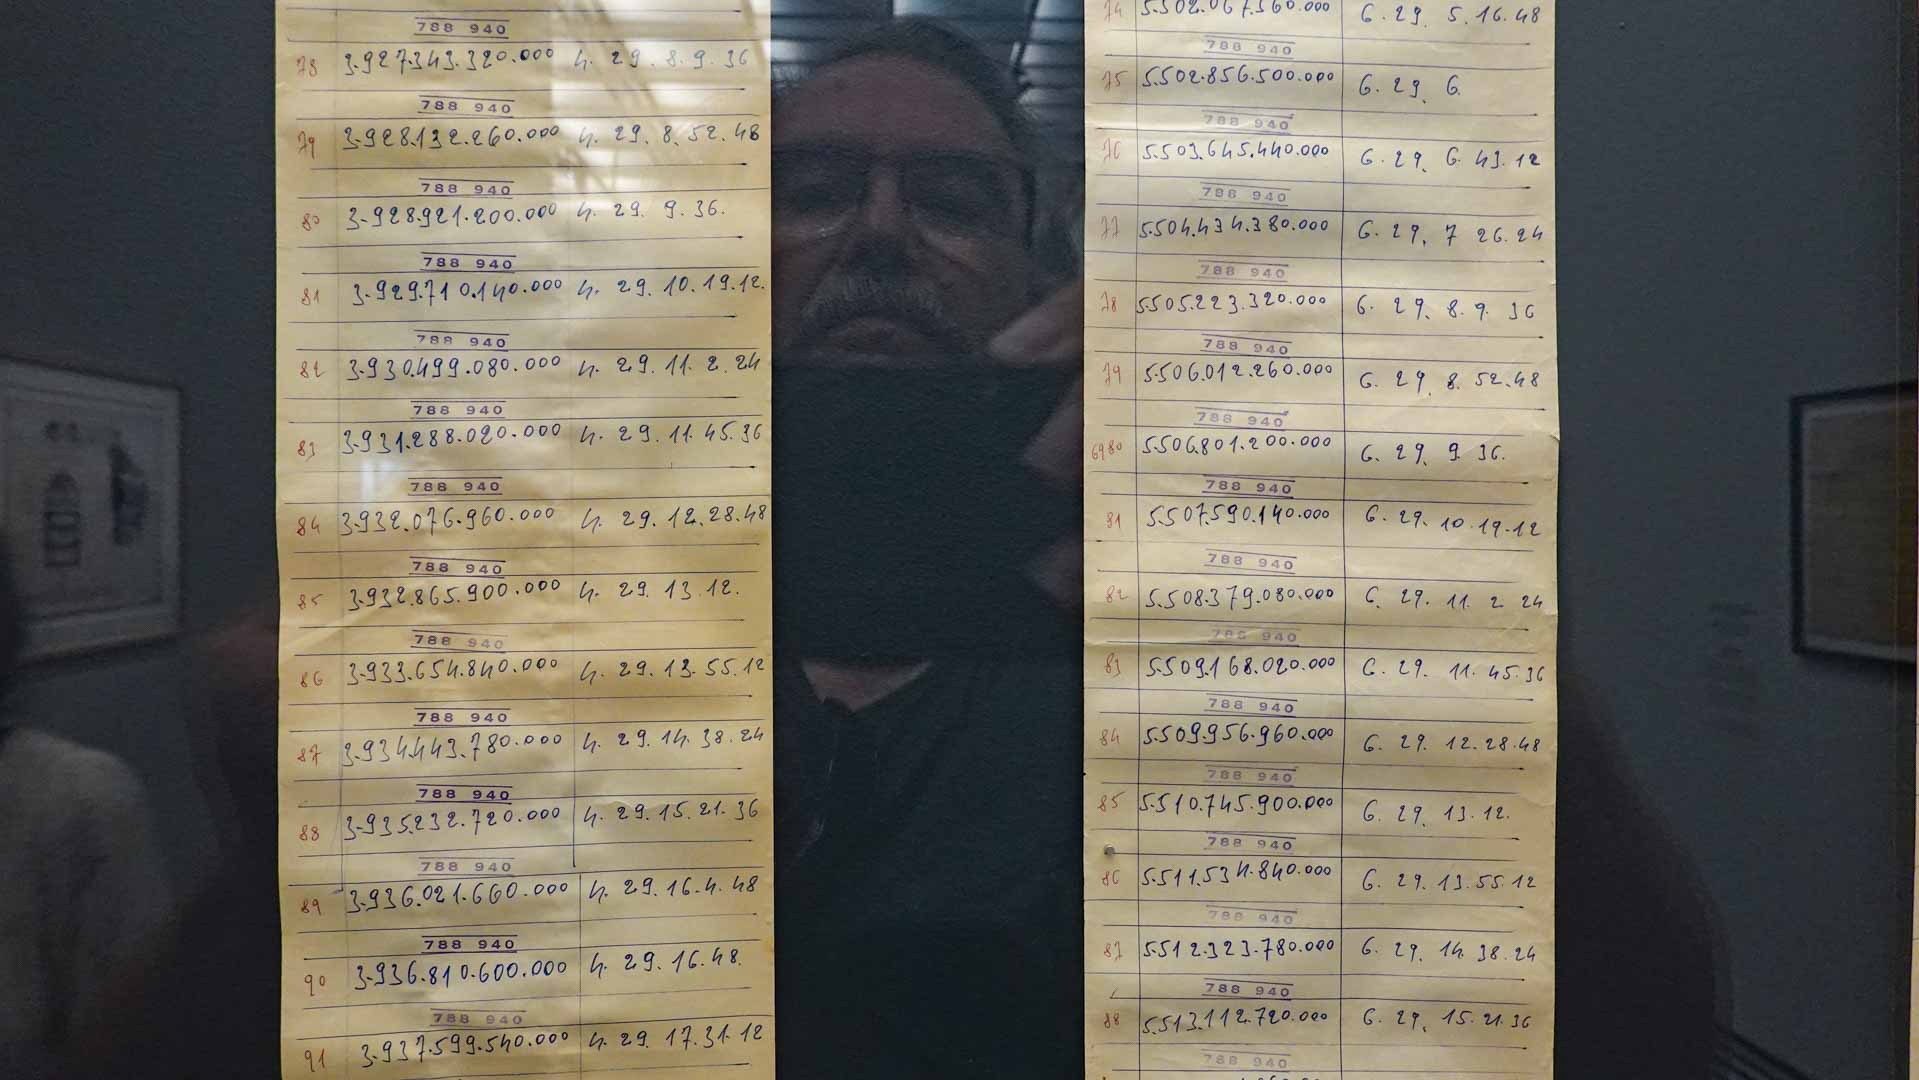 788 940
78 3.927.343.320.000 4. 29. 8. 9. 36
788 940
79 3.928.132.260.000 4. 29. 8. 52. 48
788 940
80 3.928.921.200.000 4. 29. 9. 36.
788 940
81 3.929.710.140.000 4. 29. 10. 19. 12.
788 940
82 3.930.499.080.000 4. 29. 11. 2. 24
788 940
83 3.931.288.020.000 4. 29. 11. 45. 36
788 940
84 3.932.076.960.000 4. 29. 12. 28. 48
788 940
85 3.932.865.900.000 4. 29. 13. 12.
788 940
86 3.933.654.840.000 4. 29. 13. 55. 12
788 940
87 3.934.443.780.000 4. 29. 14. 38. 24
788 940
88 3.935.232.720.000 4. 29. 15. 21. 36
788 940
89 3.936.021.660.000 4. 29. 16. 4. 48
788 940
90 3.936.810.600.000 4. 29. 16. 48.
788 940
91 3.937.599.540.000 4. 29. 17. 31. 12
74 5.502.067.560.000 6. 29. 5. 16. 48
788 940
75 5.502.856.500.000 6. 29. 6.
788 940
76 5.503.645.440.000 6. 29. 6. 43. 12
788 940
77 5.504.434.380.000 6. 29. 7 26. 24
788 940
78 5.505.223.320.000 6. 29. 8. 9. 36
788 940
79 5.506.012.260.000 6. 29. 8. 52. 48
788 940
6980 5.506.801.200.000 6. 29. 9. 36.
788 940
81 5.507.590.140.000 6. 29. 10. 19. 12
788 940
82 5.508.379.080.000 6. 29. 11. 2 24
788 940
83 5.509.168.020.000 6. 29. 11. 45. 36
788 940
84 5.509.956.960.000 6. 29. 12. 28. 48
788 940
85 5.510.745.900.000 6. 29. 13. 12.
788 940
86 5.511.534.840.000 6. 29. 13. 55. 12
788 940
87 5.512.323.780.000 6. 29. 14. 38. 24
788 940
88 5.513.112.720.000 6. 29. 15. 21. 36
788 940